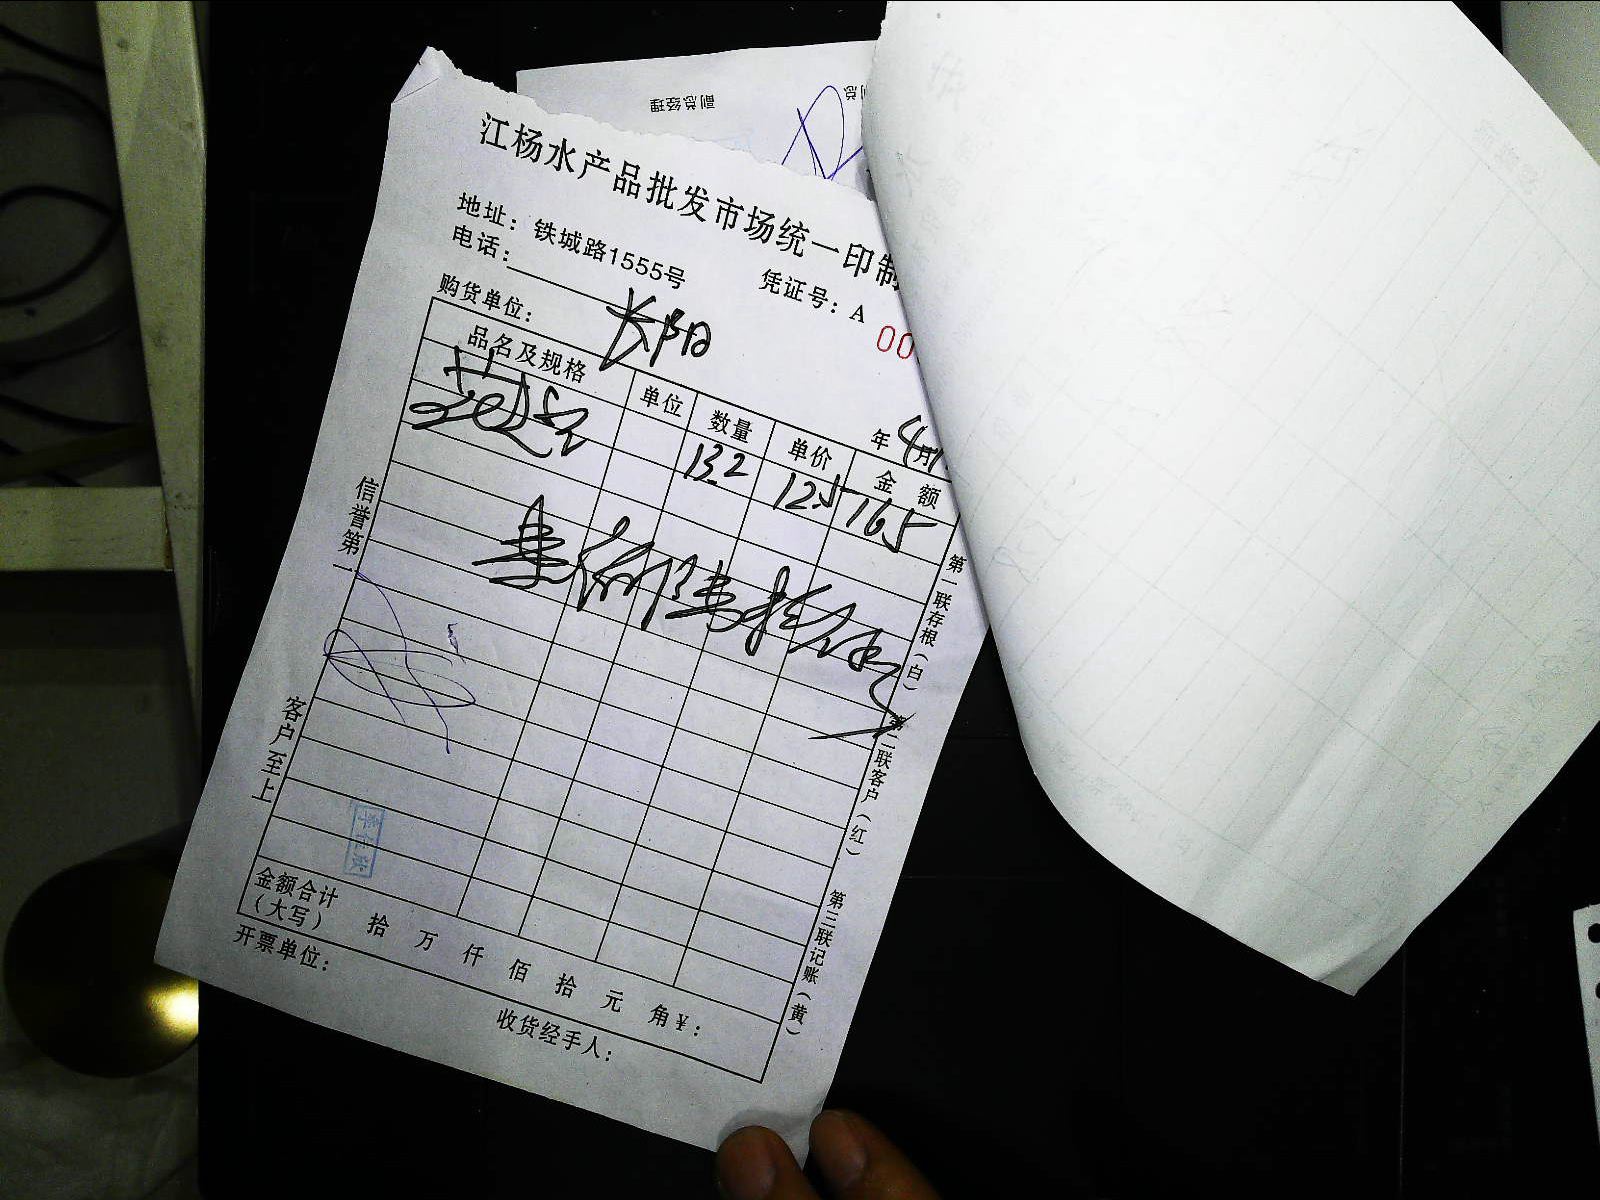 副总经理
江杨水产品批发市场统一印制
地址：铁城路1555号
电话：
凭证号：A 00
购货单位：长阳
年4月1
品名及规格 单位 数量 单价 金额
13.2 12.5 165
信誉第一
客户至上
第一联存根（白）
第二联客户（红）
第三联记账（黄）
金额合计（大写） 拾 万 仟 佰 拾 元 角 ¥：
开票单位：
收货经手人：